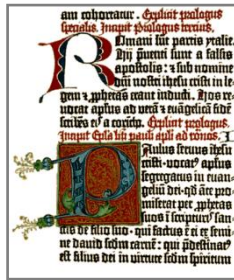 am cohortatur. Explicit prologus
specialis. Incipit Prologus tercius.
Romani sut partis ytalie.
Hij pueneti sunt a falsis
apostolis: & sub nomine
dni nostri ihesu cristi in le-
gem & pphetas erant inducti. Hos re-
vocat apostolus ad verã & euãgelicã fidẽ
scribẽs eis a corintho. Explicit prologus.
Incipit Epla bti pauli apli ad romãs. I
Paulus servus ihesu
cristi-vocat apostolus
segregatus in euan-
gelium dei-qd ãte pro-
miserat per pphetas
suos ĩ scripturis san-
tis de filio suo-qui factus ẽ ei ex semi-
ne dauid scdm carnẽ: qui pdestinat
est filius dei in virtute scdm spiritum